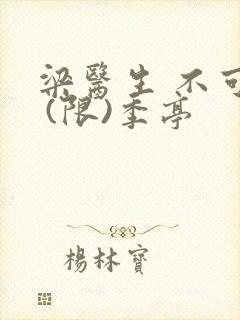 梁醫生 不可
(限)季亭
楊林寶